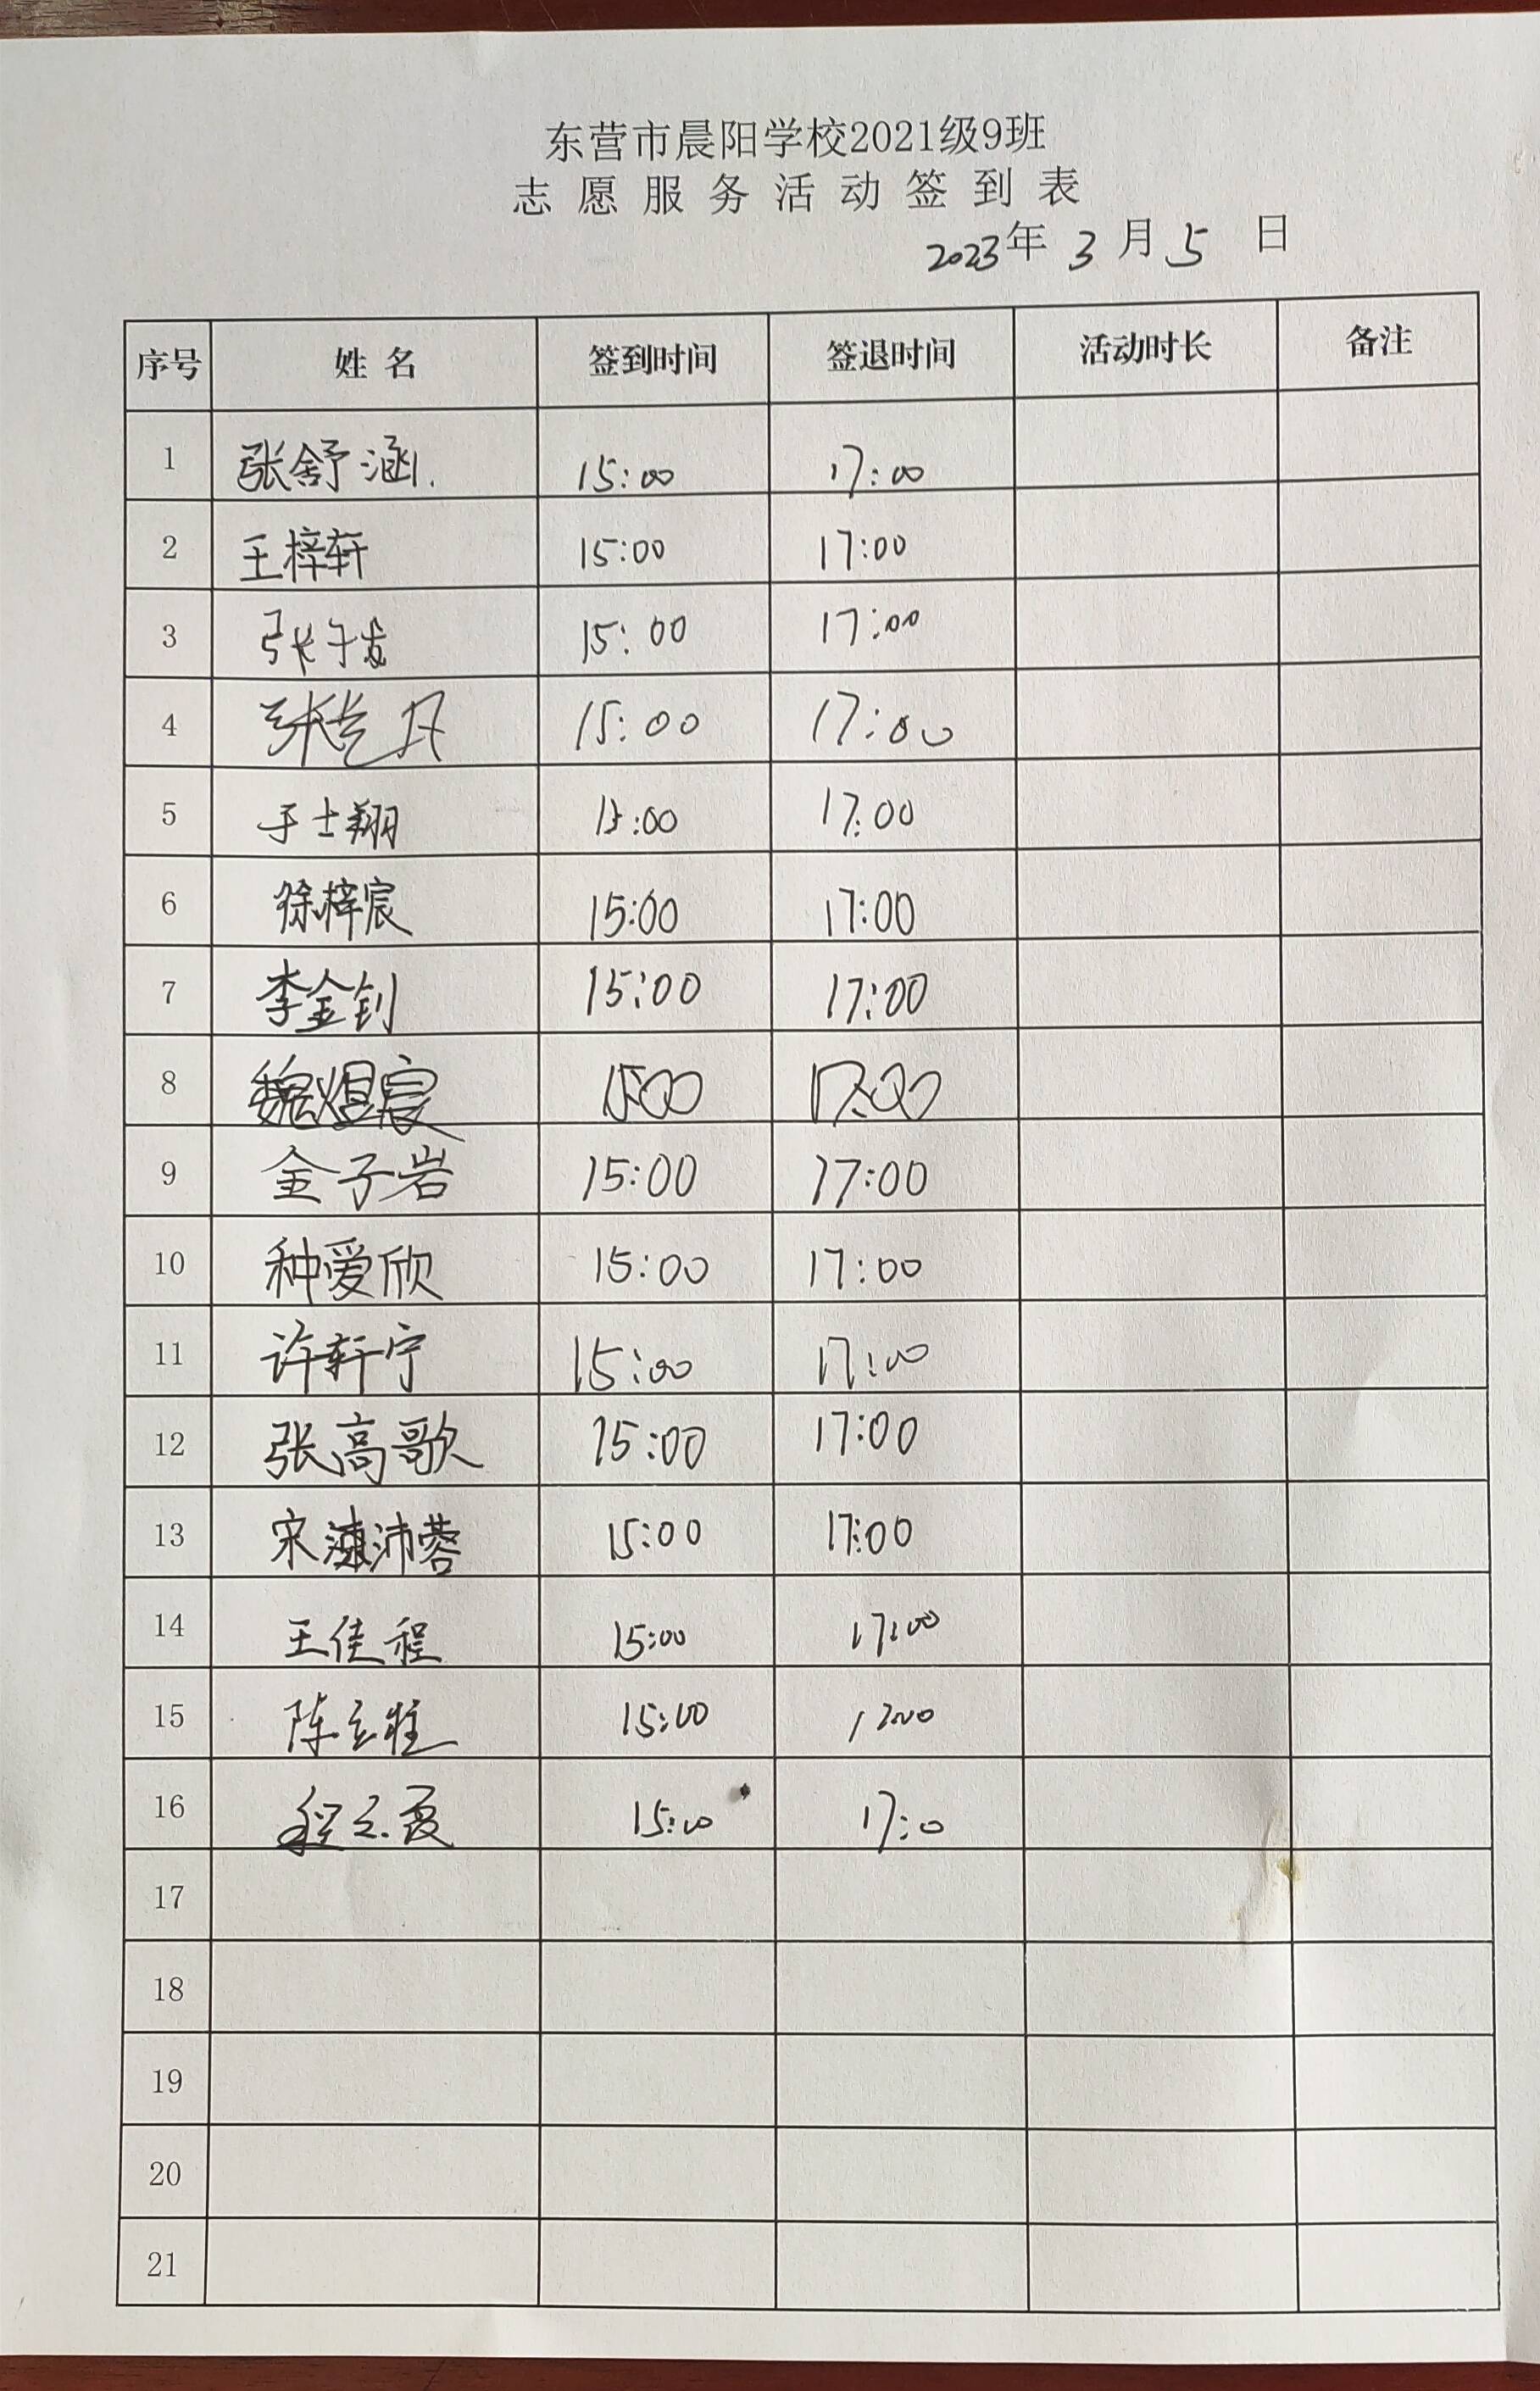 东营市晨阳学校2021级9班
志愿服务活动签到表
2023年3月5日
序号 姓名 签到时间 签退时间 活动时长 备注
1 张舒涵 15:00 17:00
2 王梓轩 15:00 17:00
3 张 15:00 17:00
4 张 15:00 17:00
5 于士翔 15:00 17:00
6 徐梓宸 15:00 17:00
7 李金钊 15:00 17:00
8 魏煜宸 15:00 17:00
9 金子岩 15:00 17:00
10 种爱欣 15:00 17:00
11 许轩宁 15:00 17:00
12 张高歌 15:00 17:00
13 宋沛蓉 15:00 17:00
14 王佳程 15:00 17:00
15 陈立 15:00
16 程 15:00 17:0
17
18
19
20
21